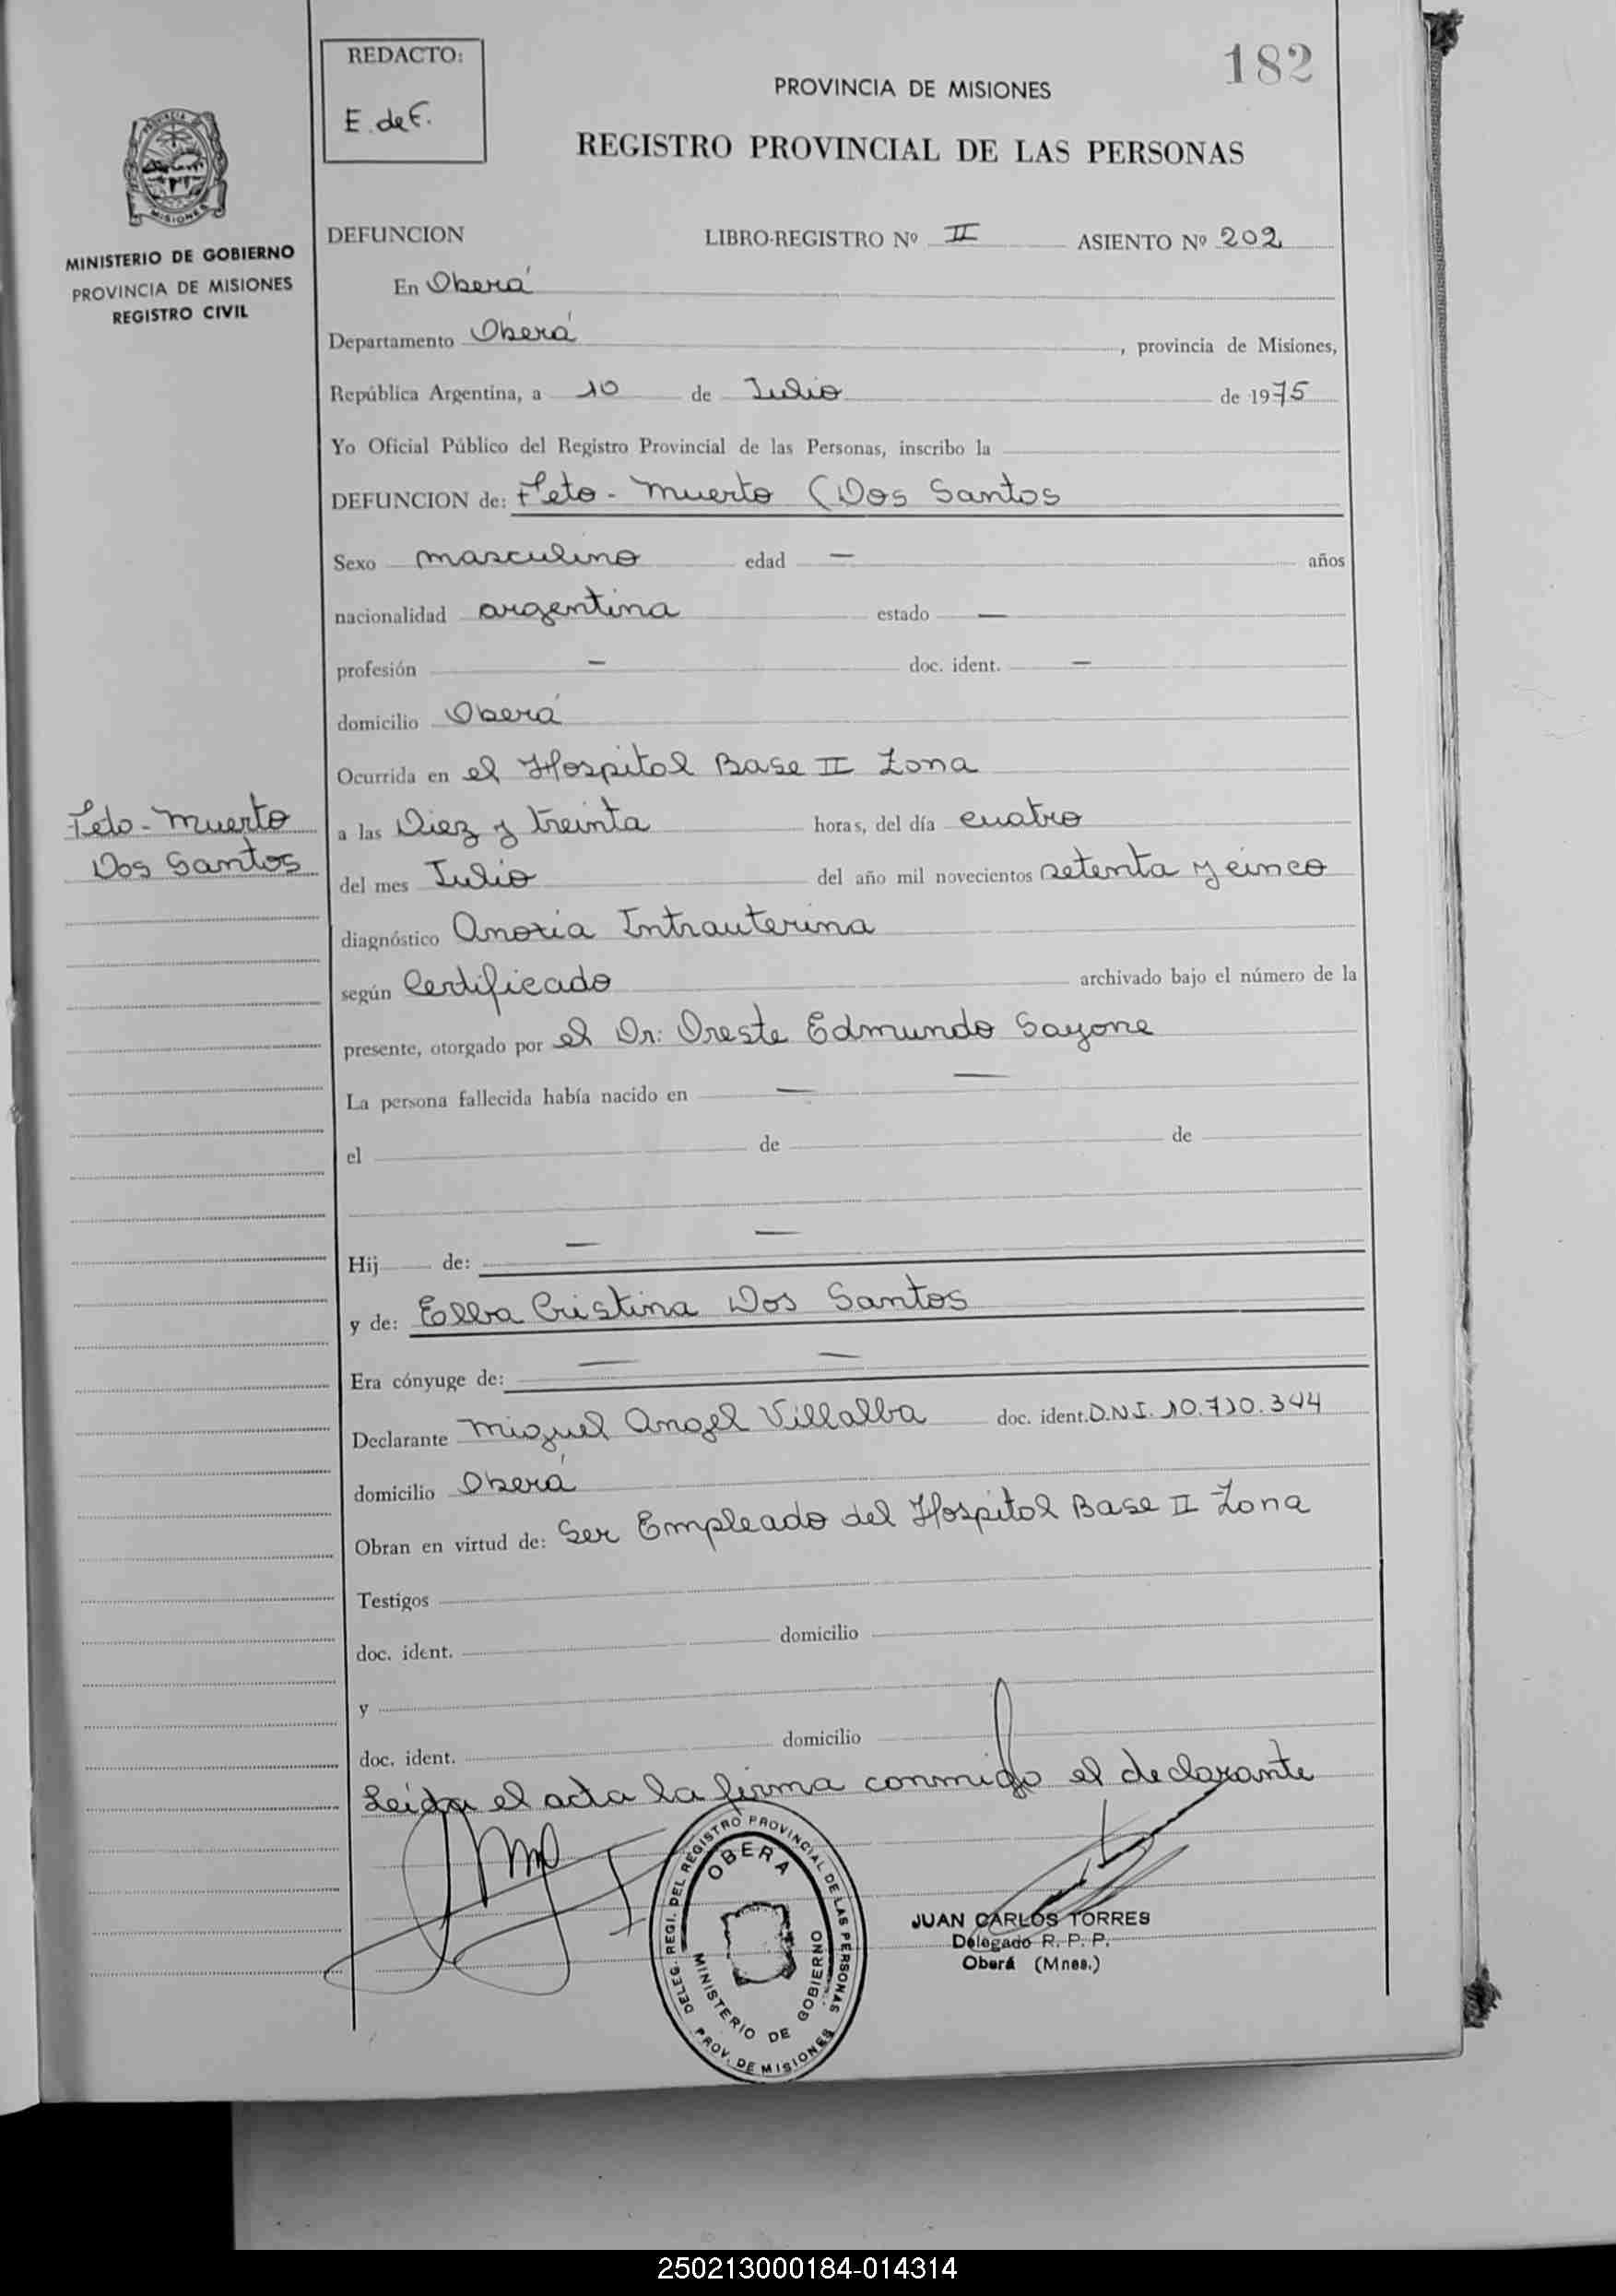 182
REDACTO:
E. de F.
PROVINCIA DE MISIONES
REGISTRO PROVINCIAL DE LAS PERSONAS
MISIONES
MINISTERIO DE GOBIERNO
PROVINCIA DE MISIONES
REGISTRO CIVIL
DEFUNCION LIBRO-REGISTRO Nº II ASIENTO Nº 202
En Oberá
Departamento Oberá, provincia de Misiones,
República Argentina, a 10 de Julio de 1975
Yo Oficial Público del Registro Provincial de las Personas, inscribo la
DEFUNCION de: Feto - Muerto (Dos Santos
Sexo masculino edad — años
nacionalidad argentina estado —
profesión — doc. ident. —
domicilio Oberá
Ocurrida en el Hospital Base II Zona
Feto - Muerto
Dos Santos
a las Diez y treinta horas, del día cuatro
del mes Julio del año mil novecientos setenta y cinco
diagnóstico Anoxia Intrauterina
según Certificado archivado bajo el número de la
presente, otorgado por el Dr: Oreste Edmundo Sayone
La persona fallecida había nacido en — —
el de de
Hij de: — —
y de: Elba Cristina Dos Santos
Era cónyuge de: — —
Declarante Miguel Angel Villalba doc. ident. D.N.I. 10.710.344
domicilio Oberá
Obran en virtud de: Ser Empleado del Hospital Base II Zona
Testigos
doc. ident. domicilio
y
doc. ident. domicilio
Leída el acta la firma conmigo el declarante
DELEG. REGI. DEL REGISTRO PROVINCIAL DE LAS PERSONAS
OBERA
MINISTERIO DE GOBIERNO
PROV. DE MISIONES
JUAN CARLOS TORRES
Delegado R. P. P.
Oberá (Mnes.)
250213000184-014314